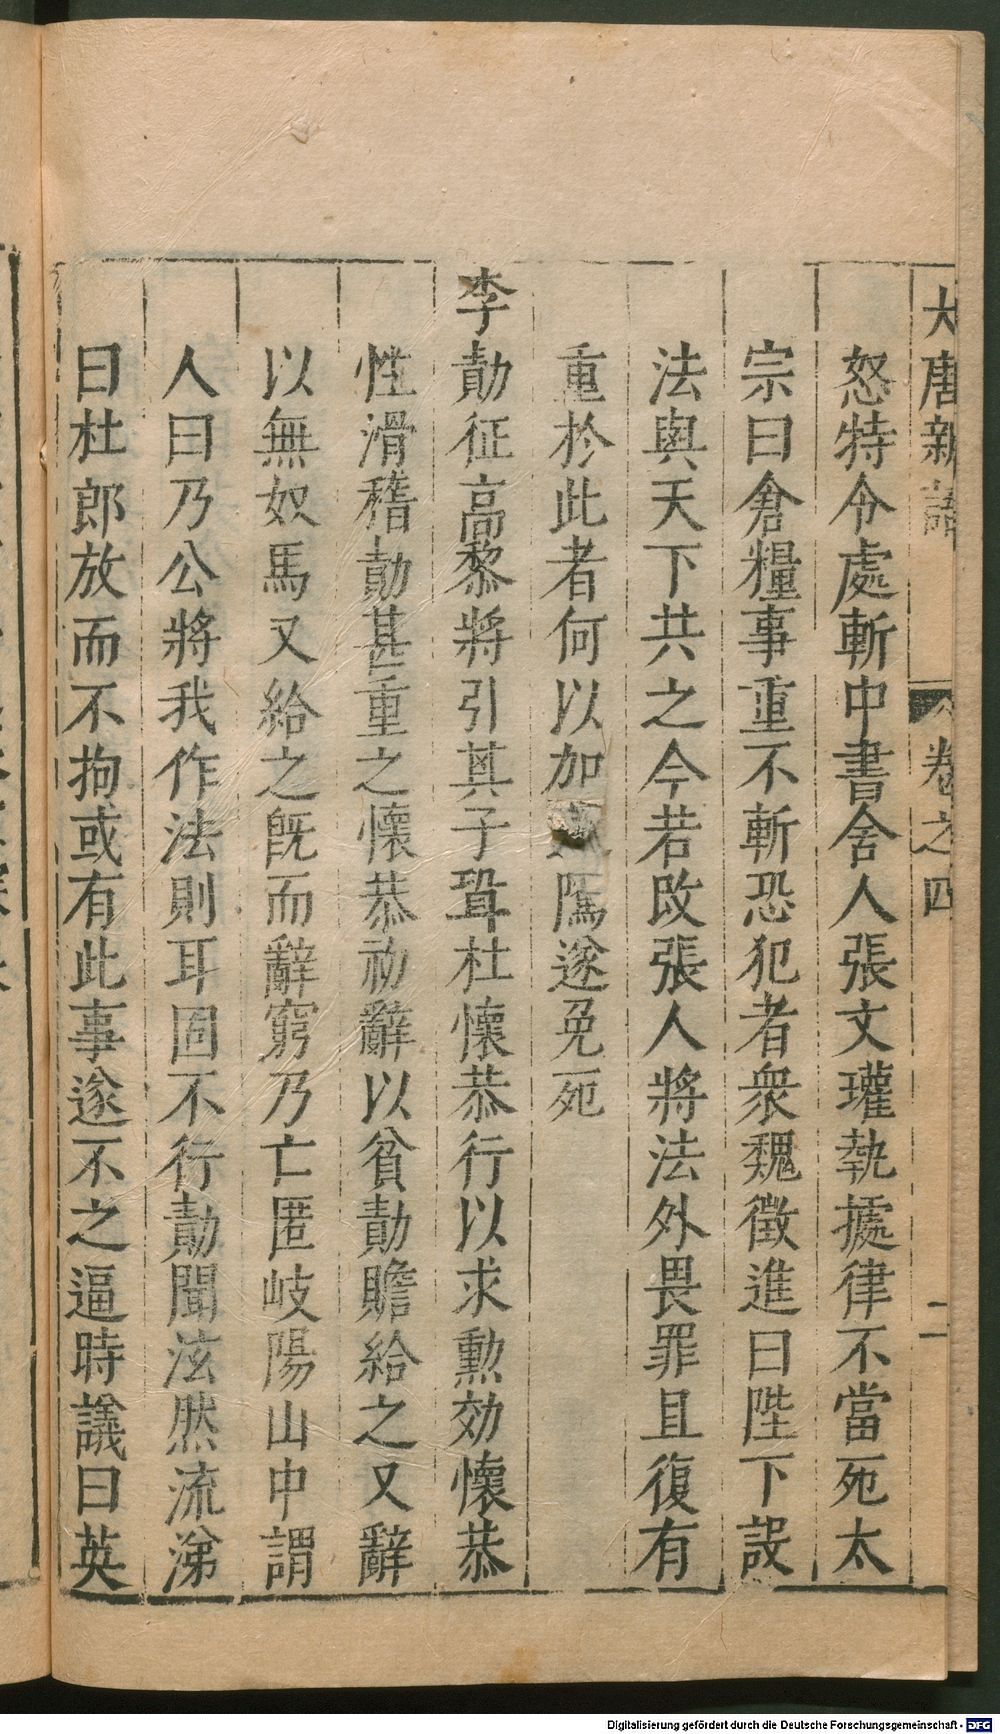 大唐新語 卷之四 二
怒特令處斬中書舍人張文瓘執據律不當死太
宗曰倉糧事重不斬恐犯者衆魏徵進曰陛下設
法與天下共之今若改張人將法外畏罪且復有
重於此者何以加 隲遂免死
李勣征高黎將引其子壻杜懷恭行以求勳効懷恭
性滑稽勣甚重之懷恭初辭以貧勣贍給之又辭
以無奴馬又給之旣而辭窮乃亡匿岐陽山中謂
人曰乃公將我作法則耳固不行勣聞泫然流涕
曰杜郎放而不拘或有此事遂不之逼時議曰英
Digitalisierung gefördert durch die Deutsche Forschungsgemeinschaft - DFG